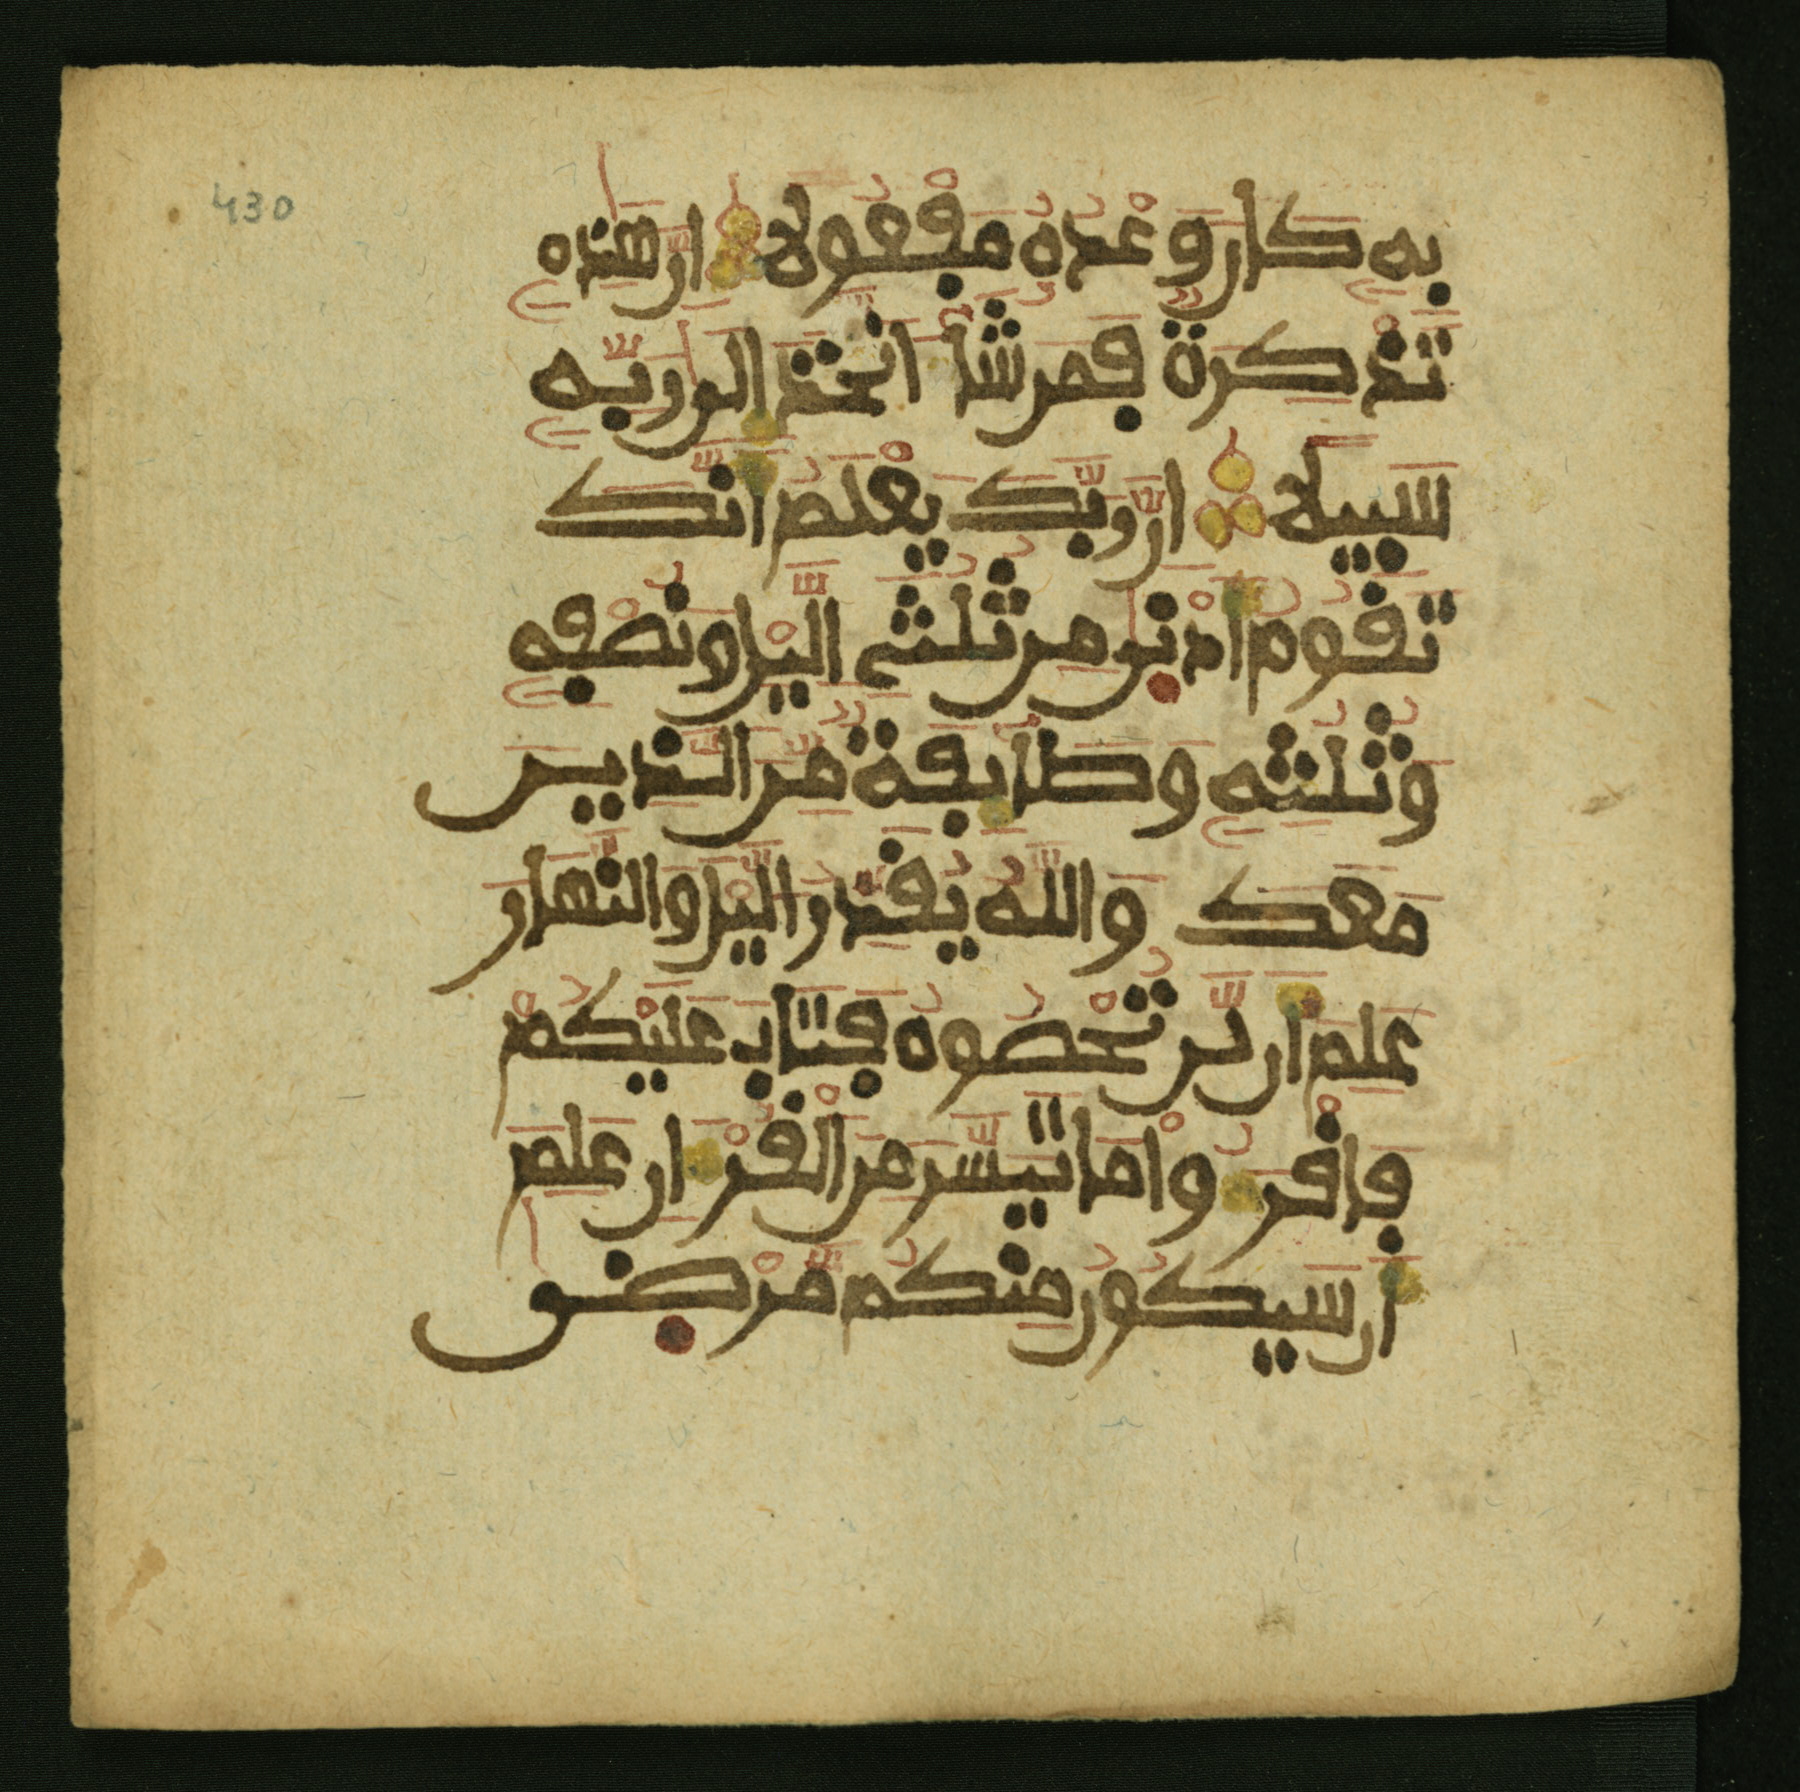 430
بِهِۦ كَانَ وَعْدُهُۥ مَفْعُولًا إِنَّ هَٰذِهِۦ
تَذْكِرَةٌ فَمَن شَآءَ ٱتَّخَذَ إِلَىٰ رَبِّهِۦ
سَبِيلًا إِنَّ رَبَّكَ يَعْلَمُ أَنَّكَ
تَقُومُ أَدْنَىٰ مِن ثُلُثَيِ ٱلَّيْلِ وَنِصْفِهِۦ
وَثُلُثِهِۦ وَطَآئِفَةٌ مِّنَ ٱلَّذِينَ
مَعَكَ وَٱللَّهُ يُقَدِّرُ ٱلَّيْلَ وَٱلنَّهَارَ
عَلِمَ أَن لَّن تُحْصُوهُ فَتَابَ عَلَيْكُمْ
فَٱقْرَءُوا۟ مَا تَيَسَّرَ مِنَ ٱلْقُرْءَانِ عَلِمَ
أَن سَيَكُونُ مِنكُم مَّرْضَىٰ